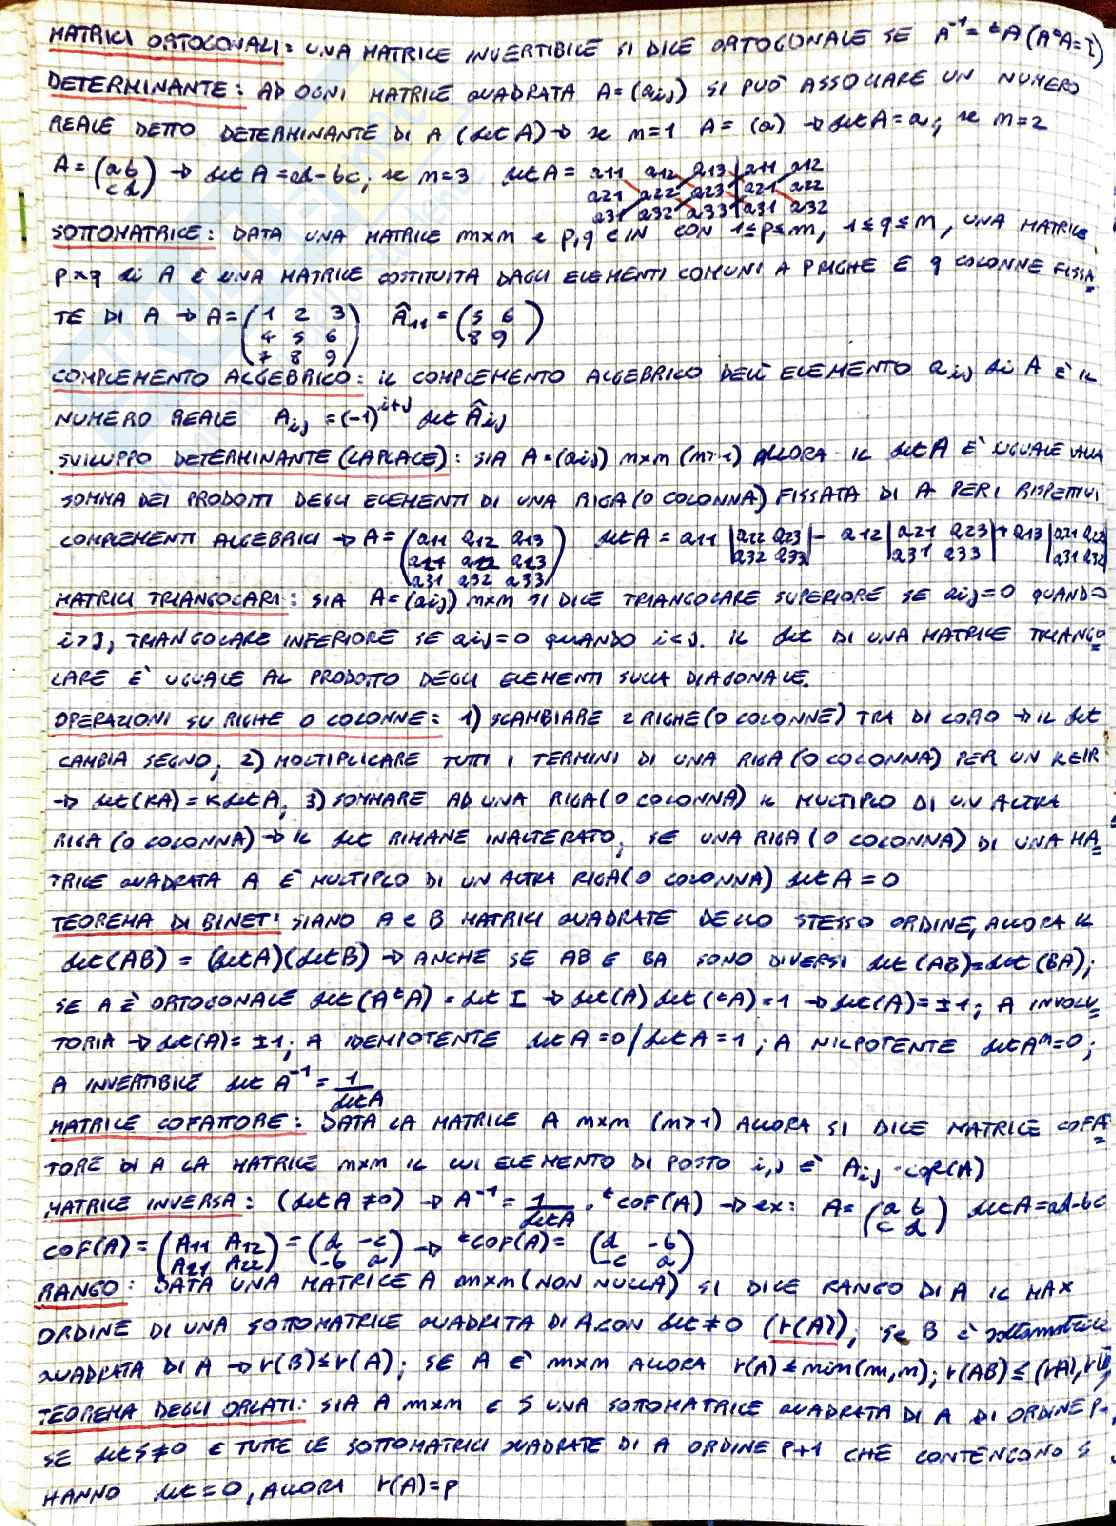 MATRICI ORTOGONALI: UNA MATRICE INVERTIBILE SI DICE ORTOGONALE SE A⁻¹ = ᵗA (AᵗA = I)
DETERMINANTE: AD OGNI MATRICE QUADRATA A=(aij) SI PUÒ ASSOCIARE UN NUMERO
REALE DETTO DETERMINANTE DI A (det A) → se n=1 A = (a) → det A = a; se n=2
A = (a b / c d) → det A = ad-bc; se n=3 det A = a11 a12 a13 | a11 a12
a21 a22 a23 | a21 a22
a31 a32 a33 | a31 a32
SOTTOMATRICE: DATA UNA MATRICE m×n e p,q ∈ IN CON 1≤p≤m, 1≤q≤n, UNA MATRICE
p×q di A È UNA MATRICE COSTITUITA DAGLI ELEMENTI COMUNI A P RIGHE E q COLONNE FISSA=
TE DI A → A = (1 2 3 / 4 5 6 / 7 8 9) Â11 = (5 6 / 8 9)
COMPLEMENTO ALGEBRICO: IL COMPLEMENTO ALGEBRICO DELL'ELEMENTO aij di A È IL
NUMERO REALE Aij = (-1)^i+j det Âij
SVILUPPO DETERMINANTE (LAPLACE): SIA A=(aij) n×n (n>1) ALLORA IL det A È UGUALE ALLA
SOMMA DEI PRODOTTI DEGLI ELEMENTI DI UNA RIGA (O COLONNA) FISSATA DI A PER I RISPETTIVI
COMPLEMENTI ALGEBRICI → A = (a11 a12 a13 / a21 a22 a23 / a31 a32 a33) det A = a11 |a22 a23 / a32 a33| - a12 |a21 a23 / a31 a33| + a13 |a21 a22 / a31 a32|
MATRICI TRIANGOLARI: SIA A=(aij) n×n SI DICE TRIANGOLARE SUPERIORE SE aij=0 QUANDO
i>j, TRIANGOLARE INFERIORE SE aij=0 QUANDO i<j. IL det DI UNA MATRICE TRIANGO=
LARE È UGUALE AL PRODOTTO DEGLI ELEMENTI SULLA DIAGONALE.
OPERAZIONI SU RIGHE O COLONNE: 1) SCAMBIARE 2 RIGHE (O COLONNE) TRA DI LORO → IL det
CAMBIA SEGNO; 2) MOLTIPLICARE TUTTI I TERMINI DI UNA RIGA (O COLONNA) PER UN K∈IR
→ det(KA) = K det A; 3) SOMMARE AD UNA RIGA (O COLONNA) IL MULTIPLO DI UN ALTRA
RIGA (O COLONNA) → IL det RIMANE INALTERATO; SE UNA RIGA (O COLONNA) DI UNA MA=
TRICE QUADRATA A È MULTIPLO DI UN ALTRA RIGA (O COLONNA) det A = 0
TEOREMA DI BINET: SIANO A e B MATRICI QUADRATE DELLO STESSO ORDINE, ALLORA IL
det(AB) = (det A)(det B) → ANCHE SE AB E BA SONO DIVERSI det(AB)=det(BA);
SE A È ORTOGONALE det(AᵗA) = det I → det(A) det(ᵗA)=1 → det(A) = ±1; A INVOLU=
TORIA → det(A)= ±1; A IDEMPOTENTE det A = 0/det A = 1; A NILPOTENTE det Aⁿ=0;
A INVERTIBILE det A⁻¹ = 1/det A
MATRICE COFATTORE: DATA LA MATRICE A n×n (n>1) ALLORA SI DICE MATRICE COFAT=
TORE DI A LA MATRICE n×n IL CUI ELEMENTO DI POSTO i,j È Aij · COF(A)
MATRICE INVERSA: (det A ≠ 0) → A⁻¹ = 1/det A · ᵗCOF(A) → ex: A = (a b / c d) det A = ad-bc
COF(A) = (A11 A12 / A21 A22) = (d -c / -b a) → ᵗCOF(A) = (d -b / -c a)
RANGO: DATA UNA MATRICE A m×n (NON NULLA) SI DICE RANGO DI A IL MAX
ORDINE DI UNA SOTTOMATRICE QUADRATA DI A CON det ≠ 0 (r(A)); se B è sottomatrice
QUADRATA DI A → r(B)≤r(A); SE A È m×n ALLORA r(A) ≤ min(m,n); r(AB) ≤ (r(A), r(B)
TEOREMA DEGLI ORLATI: SIA A m×n E S UNA SOTTOMATRICE QUADRATA DI A DI ORDINE P.
SE det S≠0 E TUTTE LE SOTTOMATRICI QUADRATE DI A ORDINE P+1 CHE CONTENGONO S
HANNO det = 0, ALLORA r(A)=p